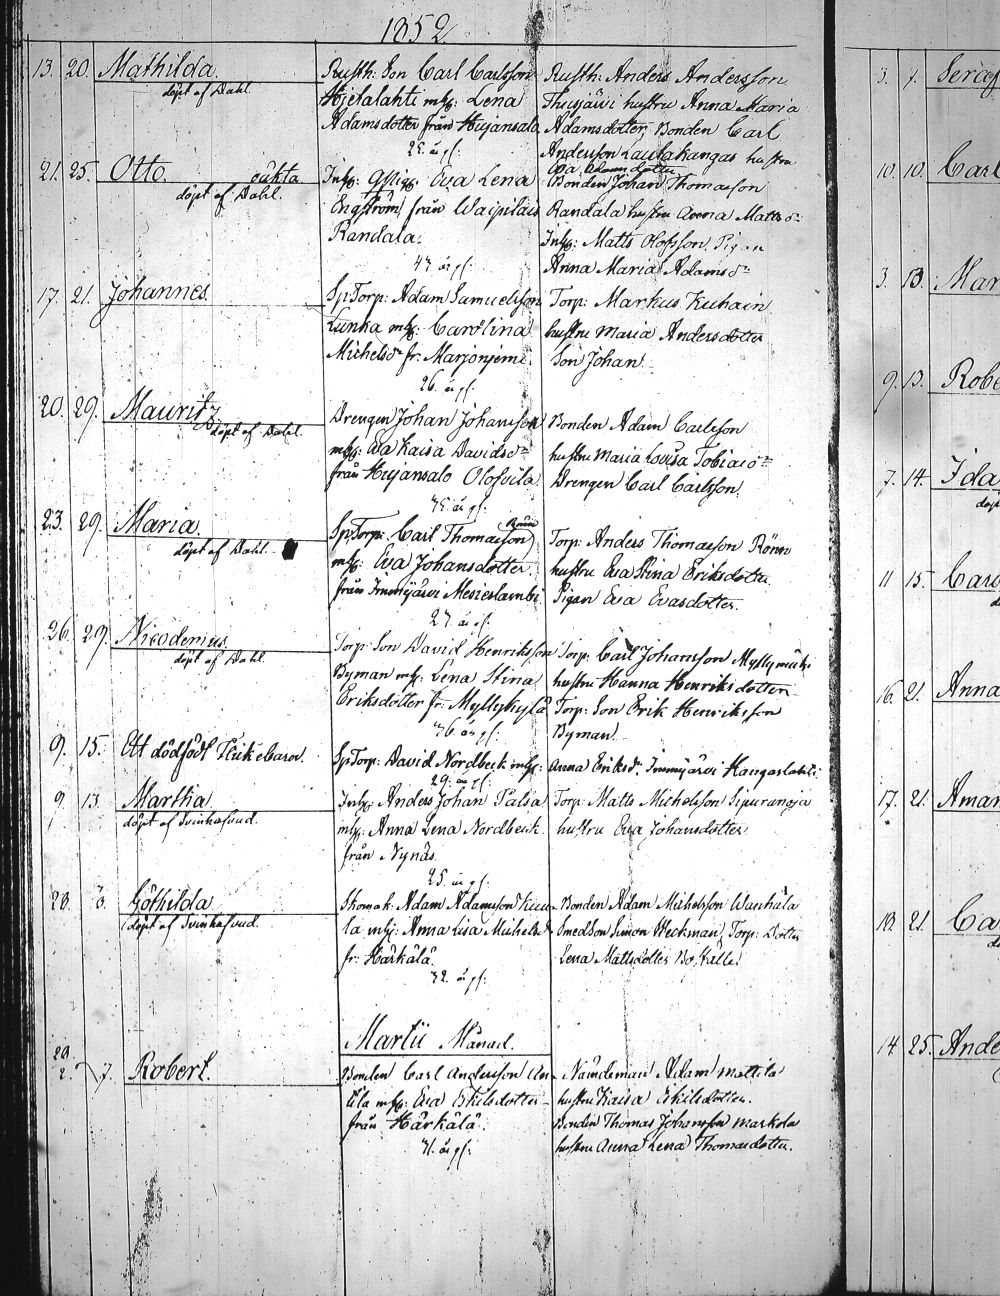 1852
13. 20. Mathilda.
döpt af Dahl.
Rusth: Son Carl Carlsson
Hjetalahti m/h: Lena
Adamsdotter från Hirjansalo
25. år gl:
Rusth: Anders Andersson
hustru Anna Maria
Adamsdotter, Bonden Carl
Andersson Lautakangas hustru
Eva Adamsdotter
21. 25. Otto. oäkta.
döpt af Dahl.
Inh: Eva Lena
Engström från
Randala.
47. år gl:
Bonden Johan Thomasson
Randala hustru Anna Mattsdr
Inh: Matts Olofsson. Pigan
Anna Maria Adamsdr
17. 21. Johannes.
SpTorp: Adam Samuelsson
Lunka m/h: Carolina
Michelsdr fr: Marjonjemi.
26. år gl:
Torp: Markus Kuhain
hustru Maria Andersdotter
Son Johan.
20. 29. Mauritz
döpt af Dahl.
Drengen Johan Johansson
m/h: Eva Kaisa Davidsdr
från Hirjansalo Olofsvila
45. år gl:
Bonden Adam Carlsson
hustru Maria Lovisa Tobiasdr
Drengen Carl Carlsson.
23. 29. Maria.
döpt af Dahl.
SpTorp: Carl Thomasson Rönn
m/h: Eva Johansdotter
från Immijärvi
27. år gl:
Torp: Anders Thomasson Rönn
hustru Eva Stina Eriksdotter
Pigan Eva Evasdotter.
26. 29. Nicodemus.
döpt af Dahl.
Torp: Son David Henriksson
Byman m/h: Lena Stina
Eriksdotter fr: Myllykylä
36 år gl:
Torp: Carl Johansson Myllymäki
hustru Hanna Henriksdotter
Torp: Son Erik Henriksson
Byman.
9. 15. Ett dödfödt Flickebarn.
SpTorp: David Nordbeck m/h:
29. år gl:
Anna Eriksdr. Immijärvi Kangaslahti
9. 13. Martha.
döpt af Svinhufvud.
Inh: Anders Johan Palsa
m/h: Anna Lena Nordbeck
från Nynäs.
25. år gl:
Torp: Matts Michelsson Sipuranoja
hustru Eva Johansdotter
28. 3. Göthilda
döpt af Svinhufvud.
Skomak: Adam Adamsson Kuu-
la m/h: Anna Lisa Michelsdr
fr: Härkälä.
32. år gl:
Bonden Adam Michelsson Wanhala
Smedson Simon Heckman, Torp: Dotter
Lena Mattsdotter
Martii Månad.
28. 2. 7. Robert.
Bonden Carl Andersson An-
tila m/h: Eva Eskilsdotter
från Härkälä.
31. år gl:
Nämdeman Adam Mattila
hustru Kaisa Eskilsdotter.
Bonden Thomas Johansson Markola
hustru Anna Lena Thomasdotter.
3. 7.
10. 10. Carl
3. 13. Mar
9. 13. Robe
7. 14. Ida
döp
11 15. Car
16. 21. Anna
17. 21. Aman
18. 21. Ca
14 25. Ande